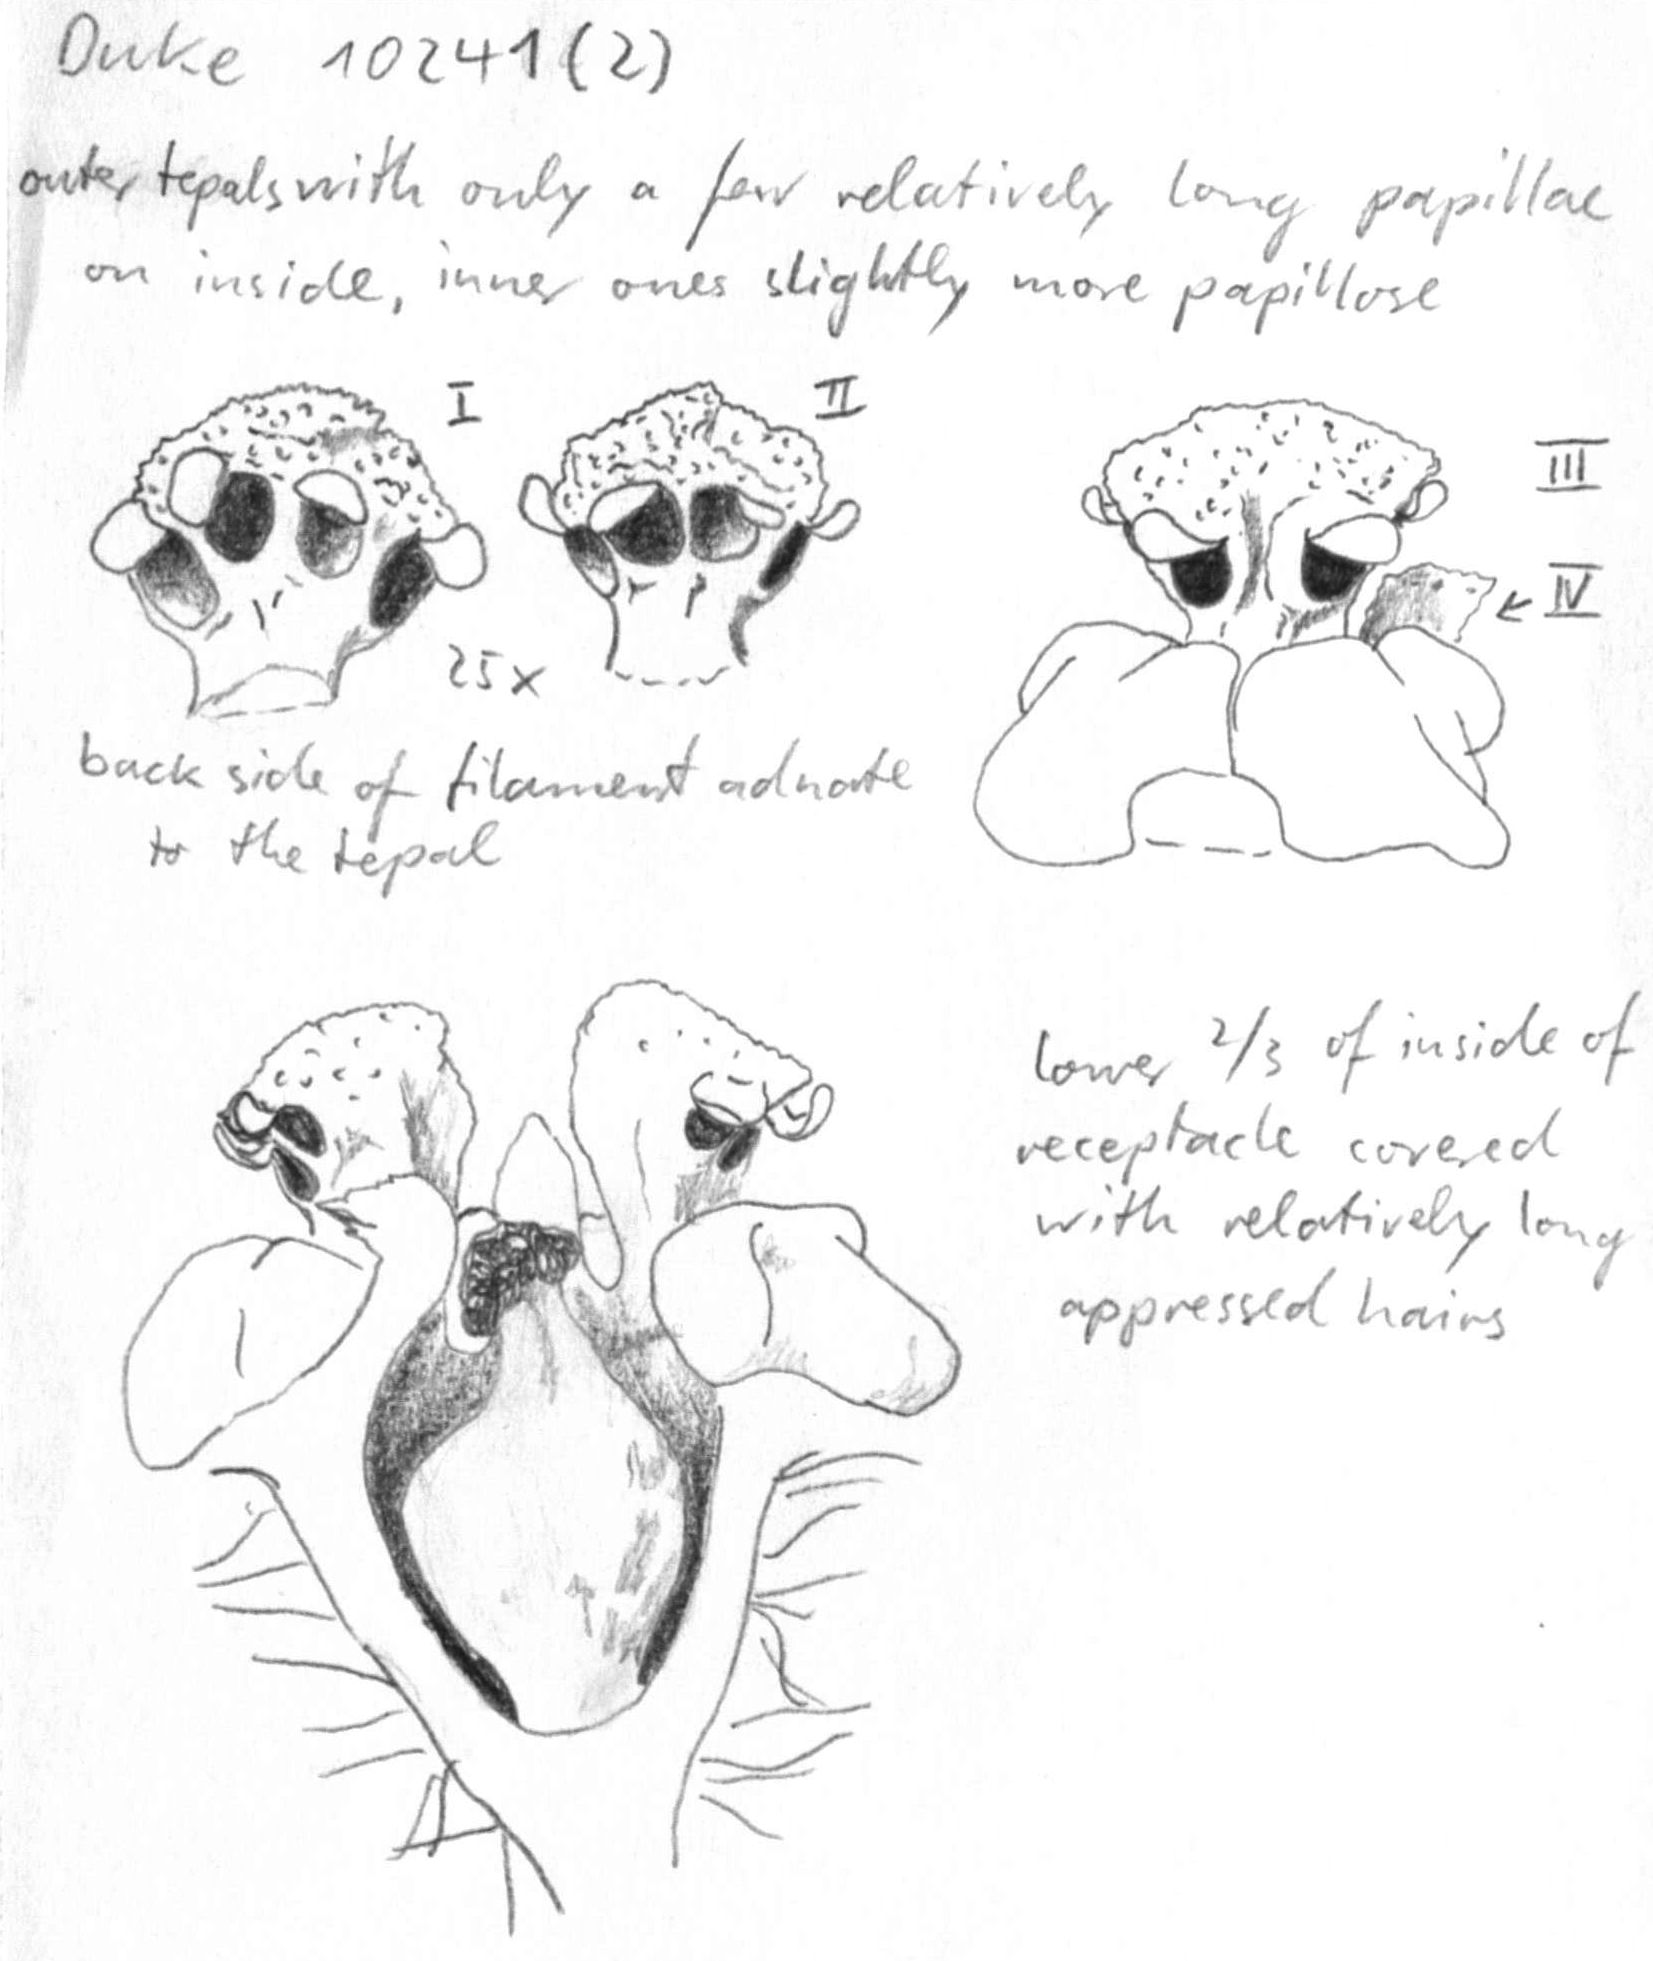 Duke 10241(2)
outer tepals with only a few relatively long papillae
on inside, inner ones slightly more papillose
I
II
III
IV
25x
back side of filament adnate
to the tepal
lower 2/3 of inside of
receptacle covered
with relatively long
appressed hairs